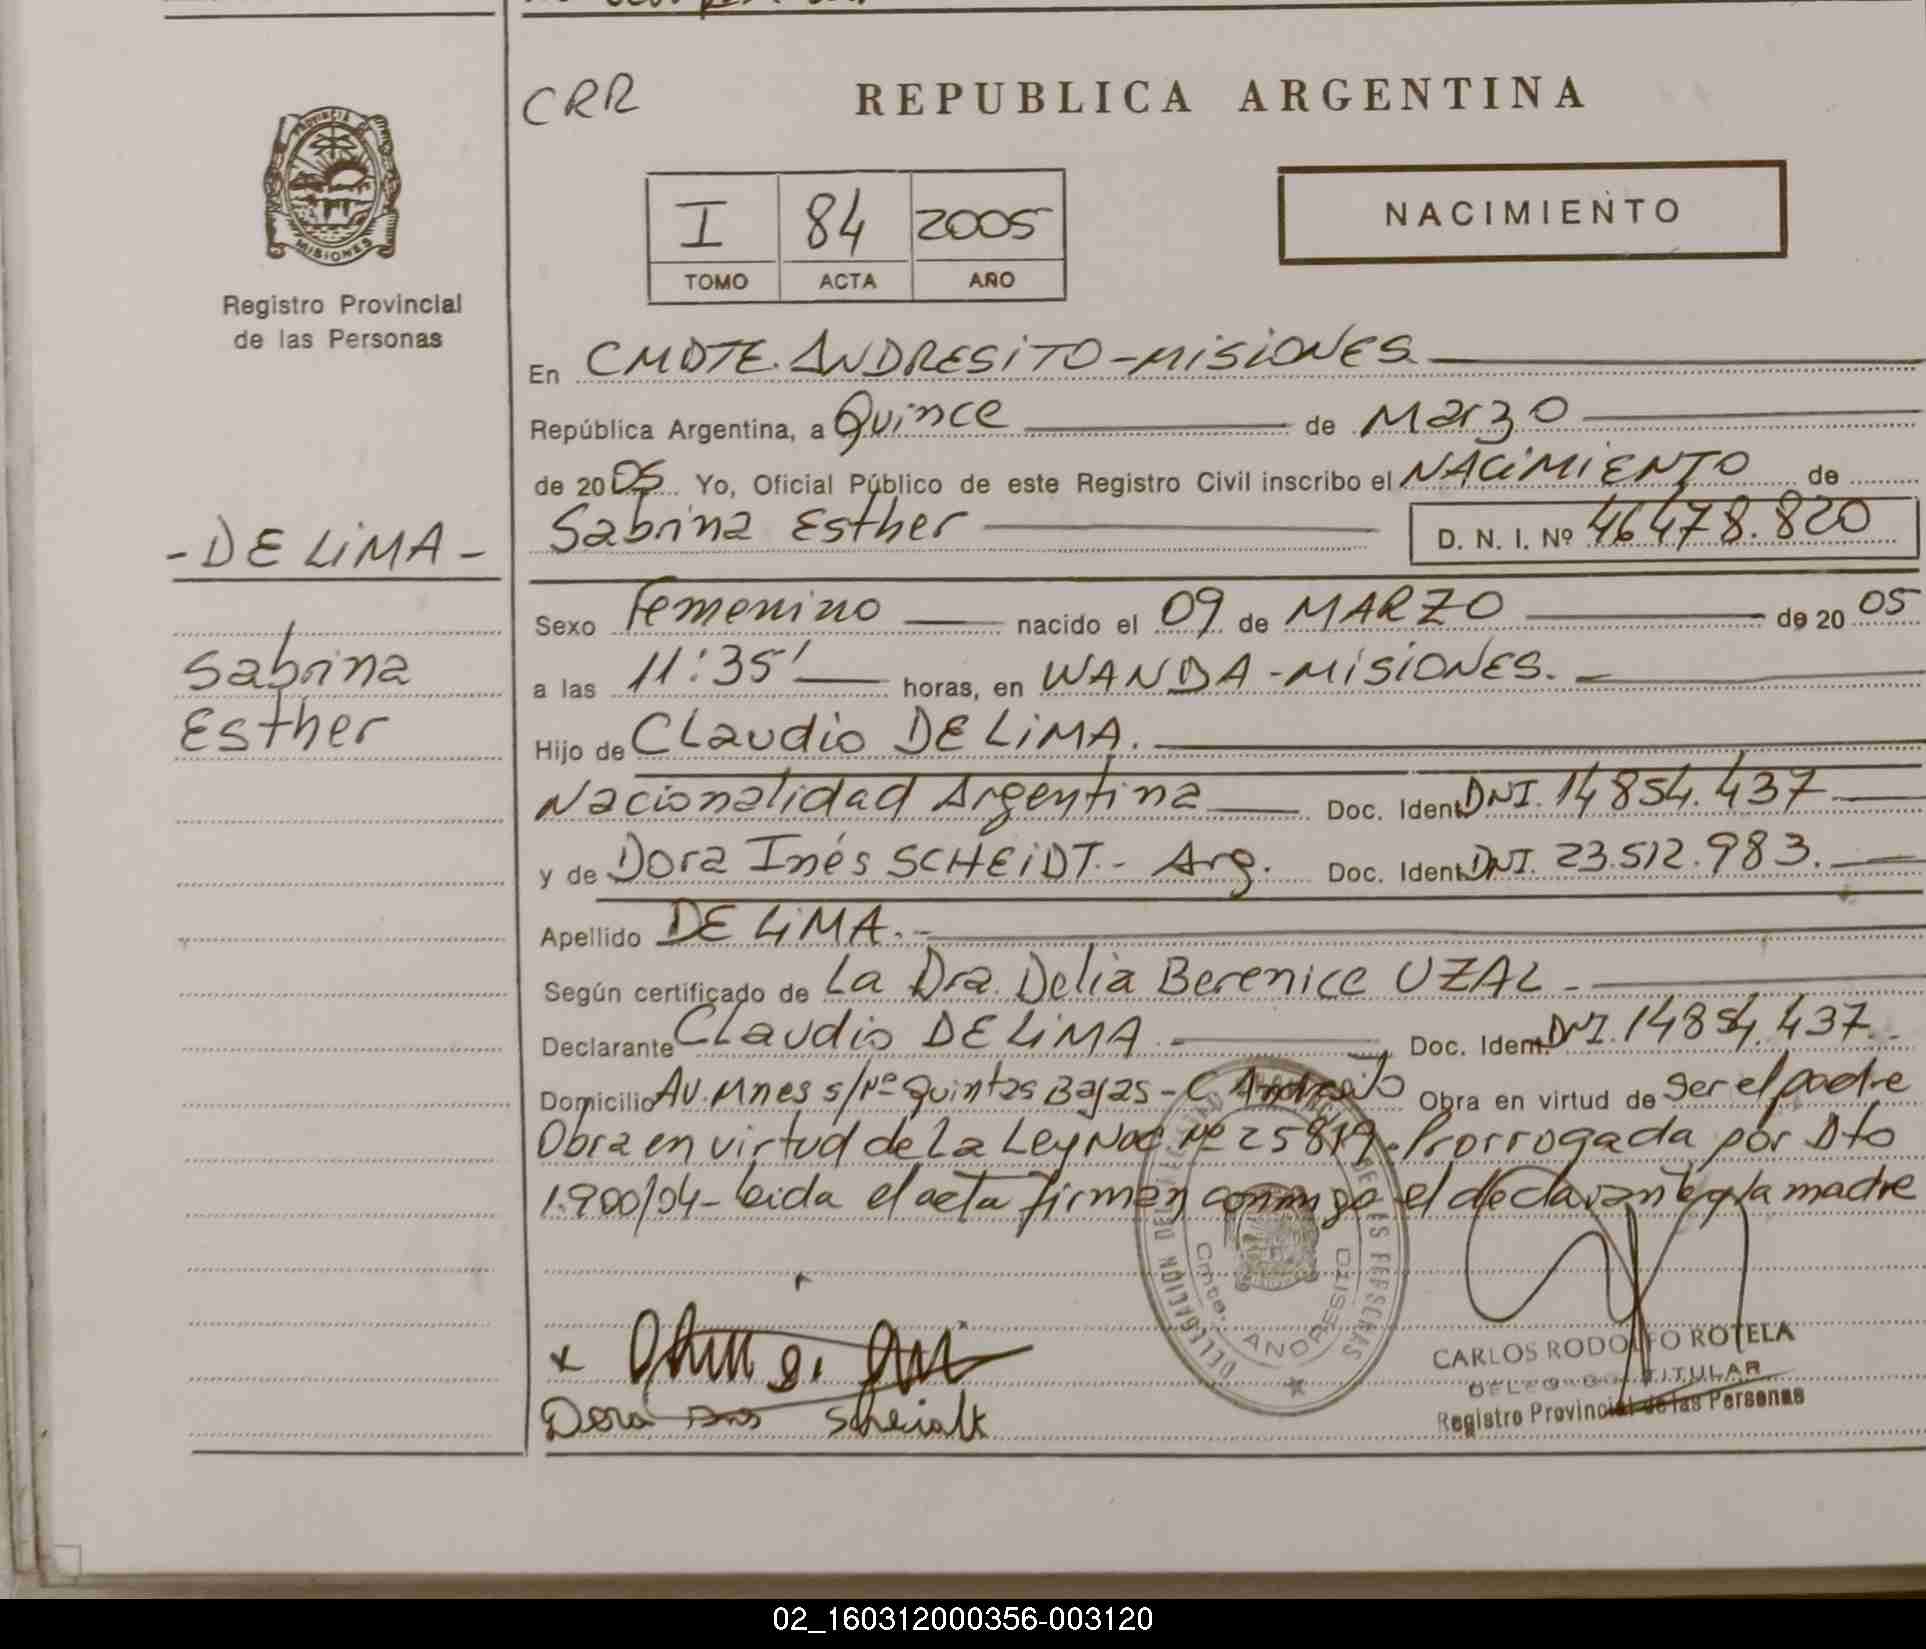 CRR
REPUBLICA ARGENTINA
PROVINCIA DE
MISIONES
I 84 2005
TOMO ACTA AÑO
NACIMIENTO
Registro Provincial
de las Personas
En CMDTE. ANDRESITO-MISIONES
República Argentina, a Quince de Marzo
de 2005 Yo, Oficial Público de este Registro Civil inscribo el NACIMIENTO de
Sabrina Esther D. N. I. Nº 46478.820
- DE LIMA -
Sabrina
Esther
Sexo Femenino nacido el 09 de MARZO de 20 05
a las 11:35' horas, en WANDA - MISIONES.
Hijo de Claudio DE LIMA.
Nacionalidad Argentina Doc. Ident. DNI. 14854.437
y de Dora Inés SCHEIDT.- Arg. Doc. Ident. DNI. 23.512.983.
Apellido DE LIMA.-
Según certificado de La Dra. Delia Berenice UZAL -
Declarante Claudio DE LIMA Doc. Ident. DNI. 14854.437.
Domicilio Av. Mnes s/Nº Quintas Bajas - C. Andresito Obra en virtud de Ser el padre
Obra en virtud de La Ley Nac Nº 25819. Prorrogada por Dto
1.900/04- leida el acta firman conmigo el declarante y la madre
DELEGACION DE LAS PERSONAS
Cmte. ANDRESITO
x
Dora Ines Scheidt
CARLOS RODOLFO ROTELA
DELEGADO TITULAR
Registro Provincial de las Personas
02_160312000356-003120